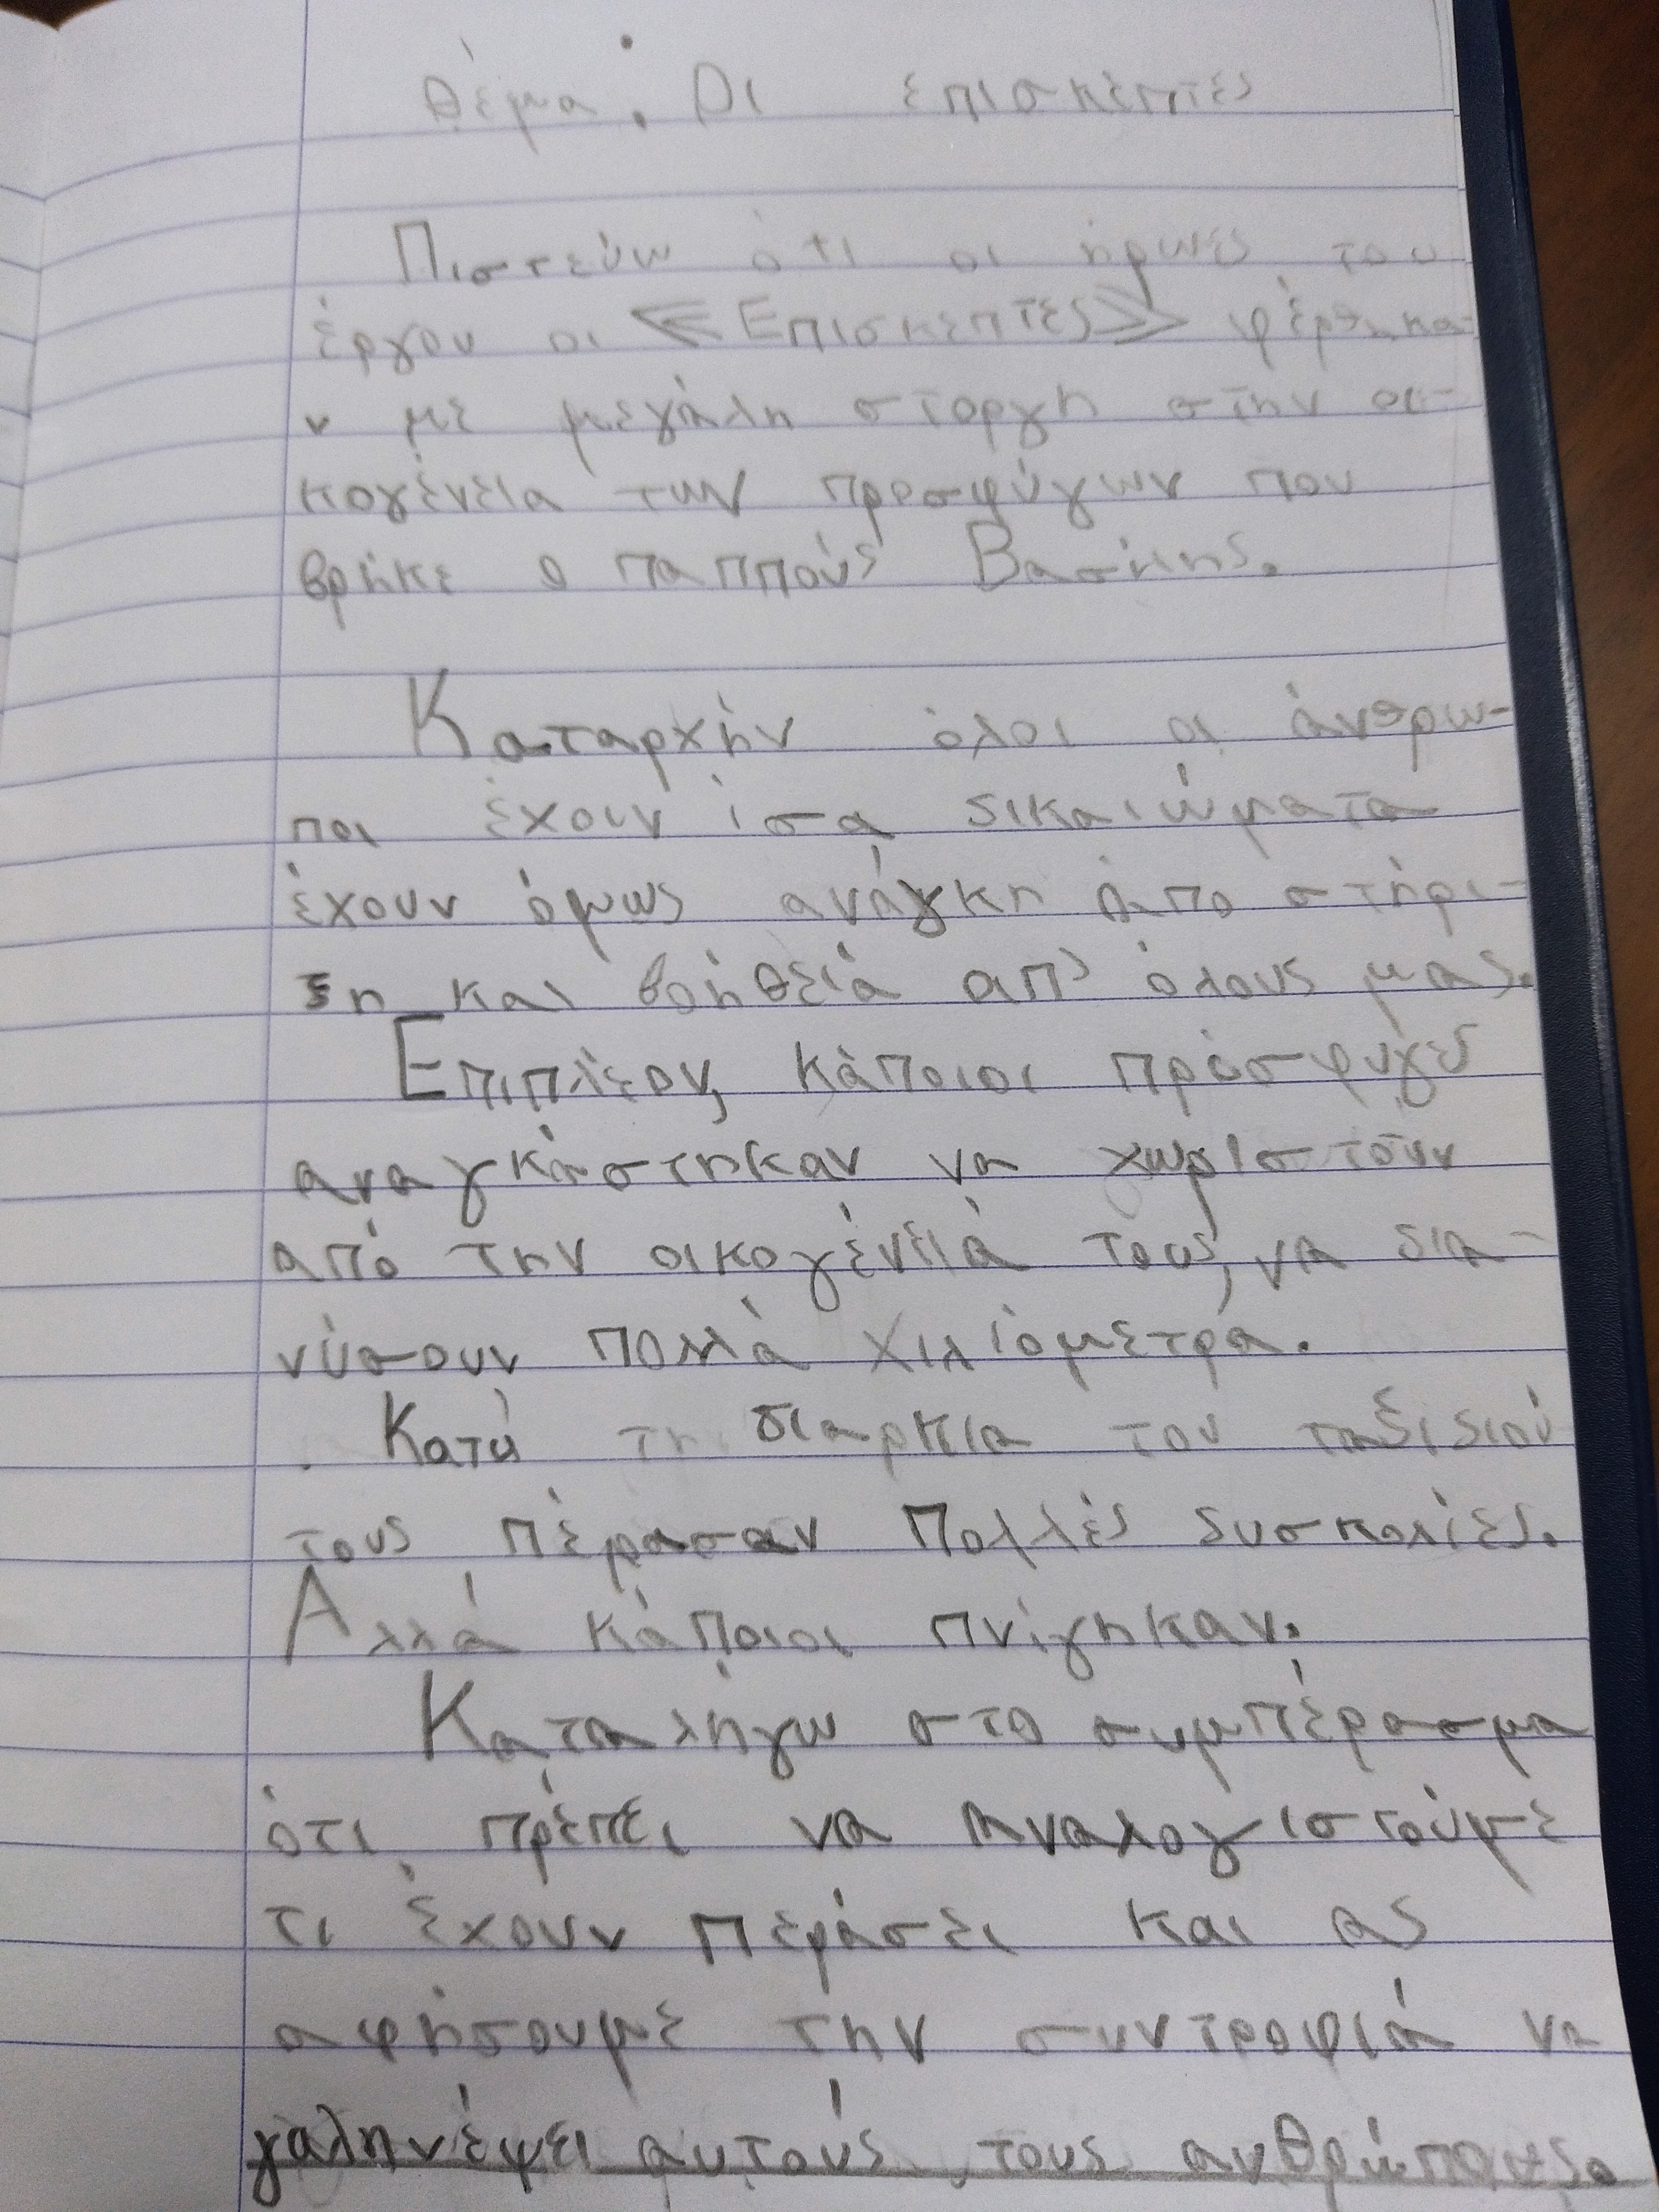 Θέμα: Οι επισκέπτες
Πιστεύω ότι οι ήρωες του
έργου οι «Επισκέπτες» φέρθηκα-
ν με μεγάλη στοργή στην οι-
κογένεια των προσφύγων που
βρήκε ο παππούς Βασίλης.
Καταρχήν όλοι οι άνθρω-
ποι έχουν ίσα δικαιώματα
έχουν όμως ανάγκη απο στήρι-
ξη και βοήθειά απ' όλους μας.
Επιπλέον, κάποιοι πρόσφυγες
αναγκάστηκαν να χωριστούν
από την οικογένειά τους, να δια-
νύσουν πολλά χιλιόμετρα.
Κατά τη διαρκια του ταξιδιού
τους πέρασαν πολλές δυσκολίες.
Αλλά κάποιοι πνίγηκαν.
Καταλήγω στο συμπέρασμα
ότι πρέπει να αναλογιστούμε
τι έχουν περάσει και ας
αφήσουμε την συντροφιά να
γαληνέψει αυτούς τους ανθρώπους.